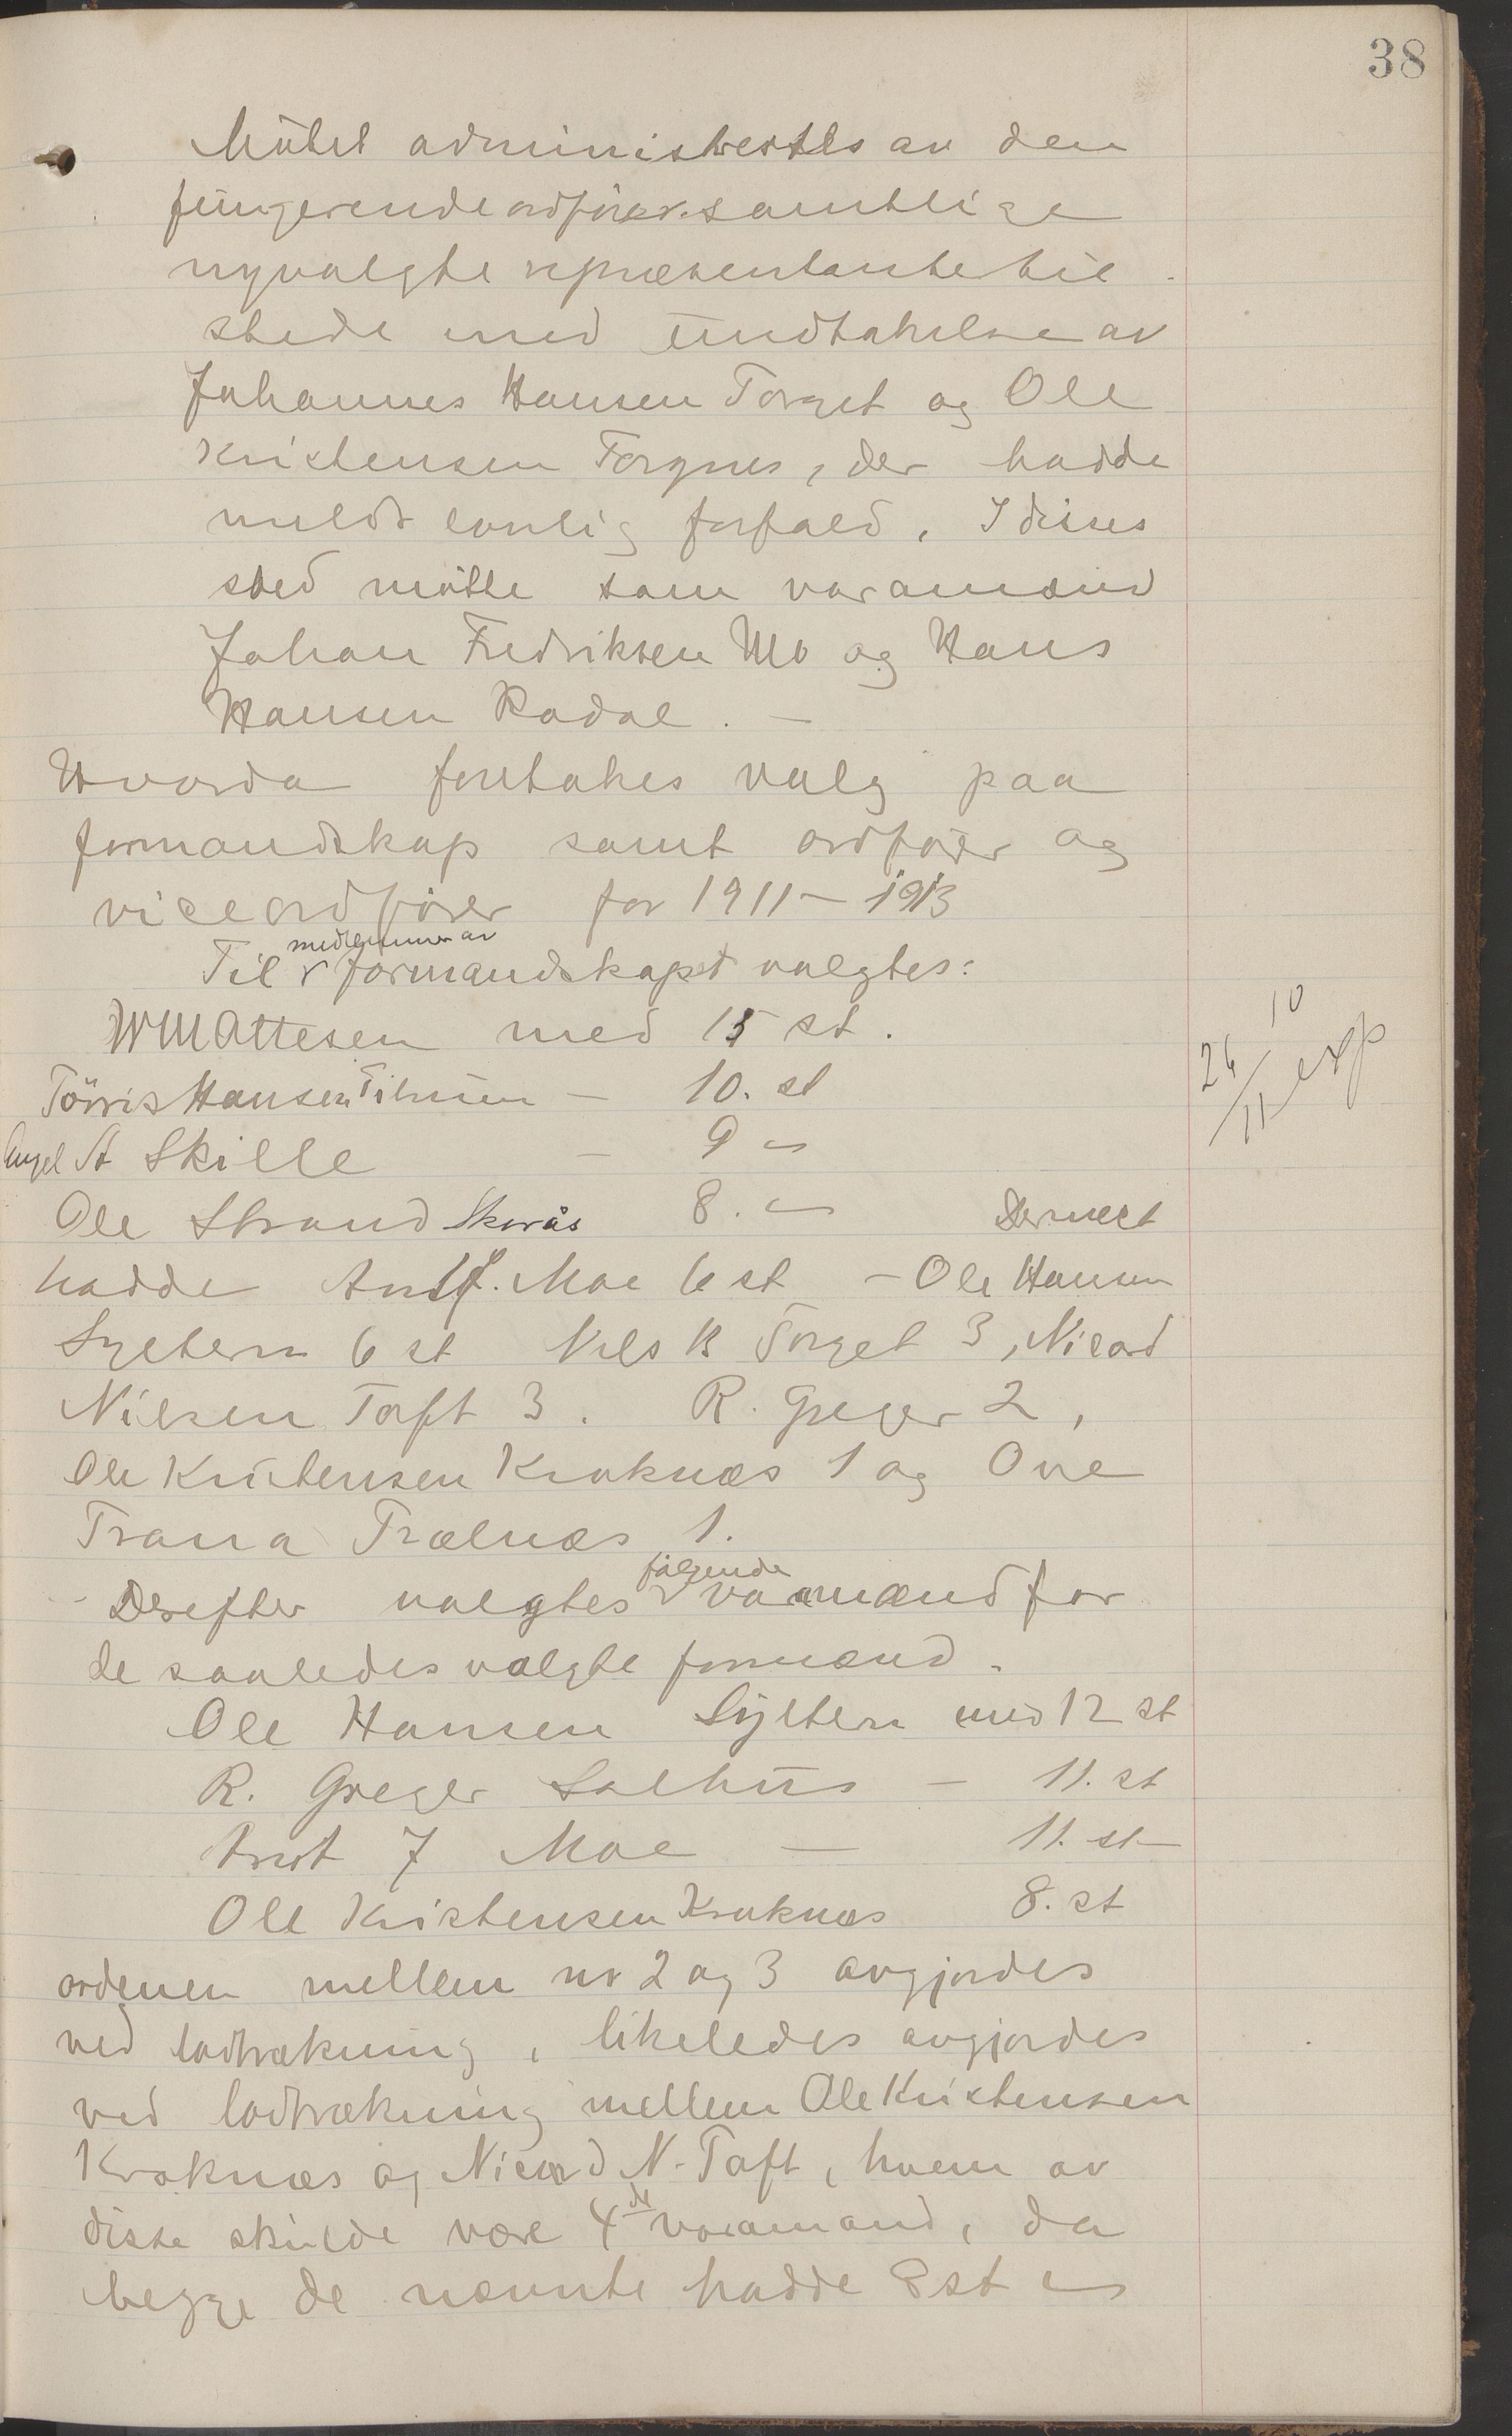 38
Mötet administrertes av den
fungerende ordförer. samtlige
nyvalgte repræsentanter til
stede med undtakelse av
Johannes Hansen Torget og Ole
Kristensen Torgnes, der hadde
meldt lovlig forfald. I disses
sted mötte som varamænd
Johan Fredriksen Mo og Hans
Hansen Rødal. —
Hvorda foretokes valg paa
formandskap samt ordförer og
viceordförer for 1911 - 1913
medlemmer av
Til formandskapet valgtes:
W Mattesen med 15 st.
Törris Hansen Tilrum — 10. st
Angel A Skille — 9 "
Ole Strand Skorås 8. " Dernæst
hadde Arnt J. Moe 6 st - Ole Hansen
Syltern 6 st Nils B Torget 3, Nicard
Nilsen Toft 3. R. Greger 2,
Ole Kristensen Kroknæs 1 og Ove
Trana Trælnæs 1.
følgende
Derefter valgtes varamænd for
de saaledes valgte formænd.
Ole Hansen Syltern med 12 st
R. Greger Salhus — 11. st
Arnt J Moe — 11. st
Ole Kristensen Kroknæs 8. st
ordenen mellem nr 2 og 3 avgjordes
ved lodtrækning, likeledes avgjordes
ved lodtrækning mellem Ole Kristensen
Kroknæs og Nicard N. Toft, hvem av
disse skulde være 4de varamand, da
begge de nævnte hadde 8 st
26/10 11 exp